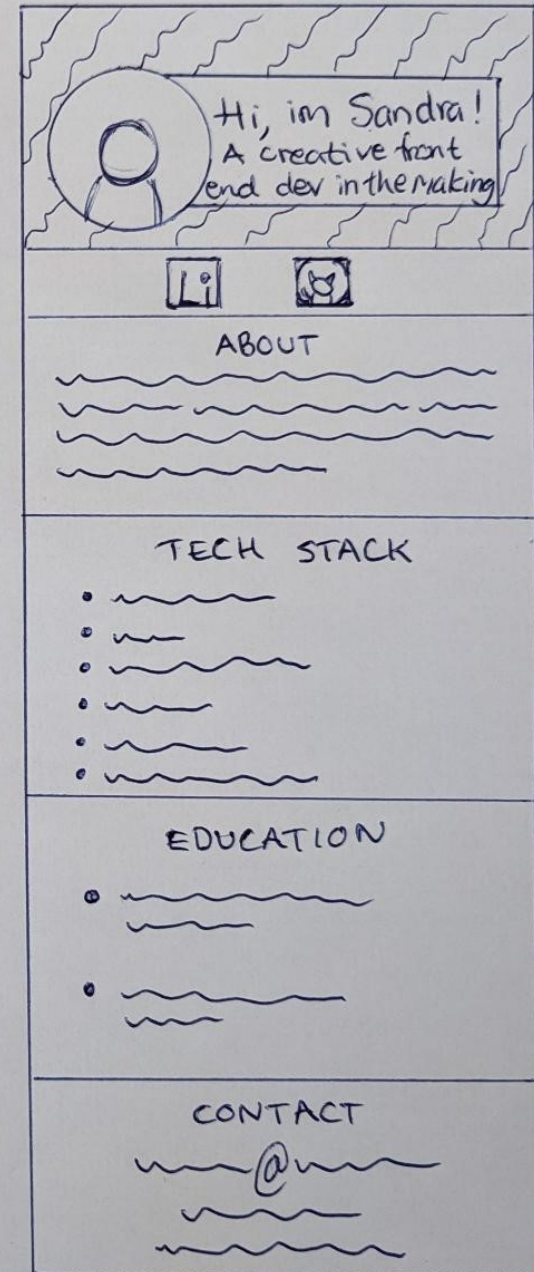 Hi, im Sandra!
A creative front
end dev in the making
Li
ABOUT
TECH STACK
EDUCATION
CONTACT
@